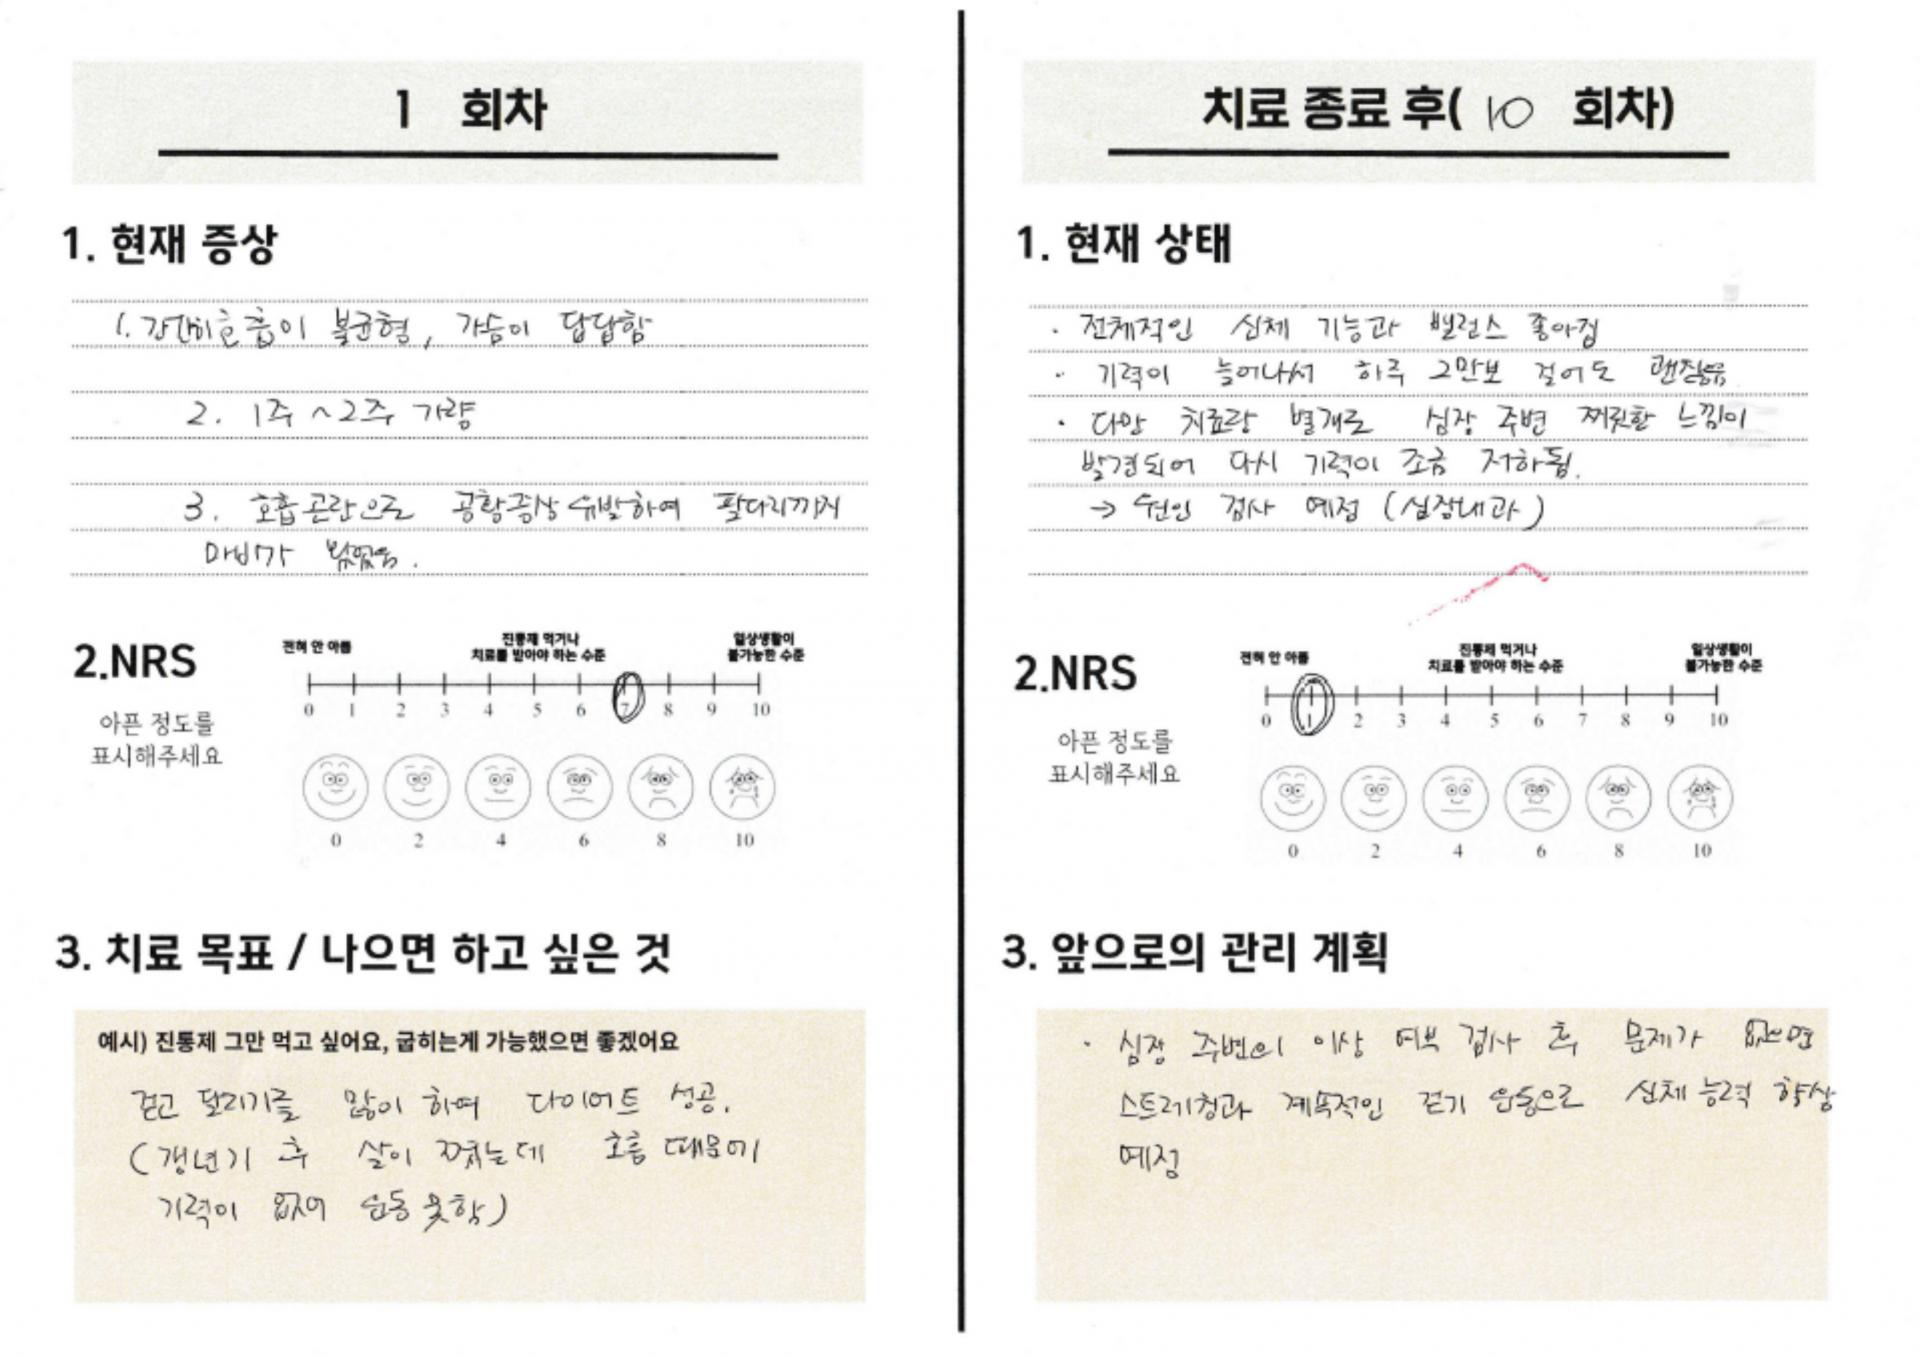 1 회차
1. 현재 증상
1. 간간히 호흡이 불균형, 가슴이 답답함
2. 1주 ~ 2주 가량
3. 호흡곤란으로 공황증상 유발하여 팔다리까지
마비가 왔었음.
2.NRS
아픈 정도를
표시해주세요
전혀 안 아픔
진통제 먹거나
치료를 받아야 하는 수준
일상생활이
불가능한 수준
0 1 2 3 4 5 6 7 8 9 10
0 2 4 6 8 10
3. 치료 목표 / 나으면 하고 싶은 것
예시) 진통제 그만 먹고 싶어요, 굽히는게 가능했으면 좋겠어요
걷고 달리기를 많이 하여 다이어트 성공.
(갱년기 후 살이 쪘는데 호흡 때문에
기력이 없어 운동 못함)
치료 종료 후( 10 회차)
1. 현재 상태
· 전체적인 신체 기능과 밸런스 좋아짐
· 기력이 늘어나서 하루 2만보 걸어도 괜찮음
· 다만 치료랑 별개로 심장 주변 찌릿한 느낌이
발견되어 다시 기력이 조금 저하됨.
→ 원인 검사 예정 (심장내과)
2.NRS
아픈 정도를
표시해주세요
전혀 안 아픔
진통제 먹거나
치료를 받아야 하는 수준
일상생활이
불가능한 수준
0 1 2 3 4 5 6 7 8 9 10
0 2 4 6 8 10
3. 앞으로의 관리 계획
· 심장 주변의 이상 여부 검사 후 문제가 없으면
스트레칭과 계속적인 걷기 운동으로 신체 능력 향상
예정